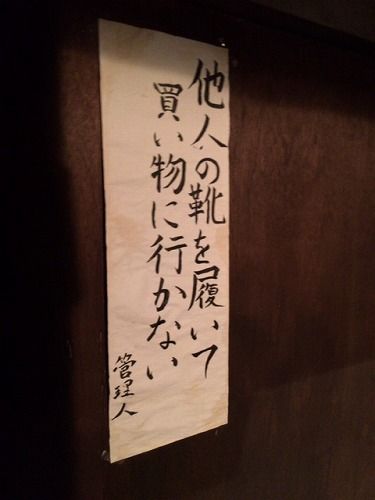 他人の靴を履いて
買い物に行かない
管理人